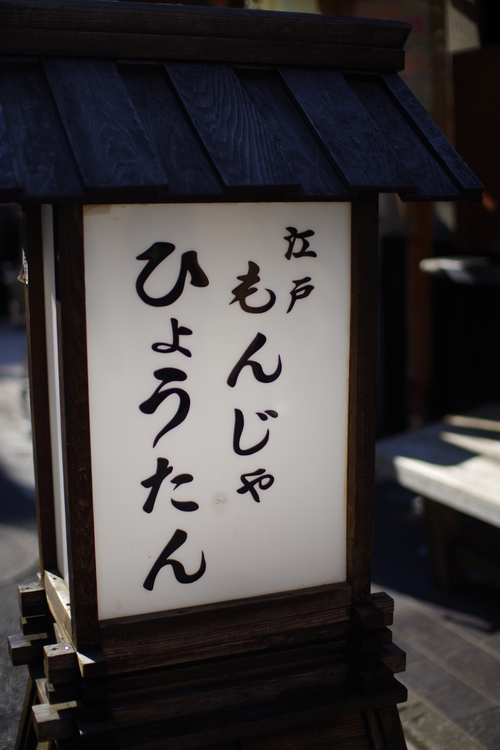 江戸
もんじゃ
ひょうたん